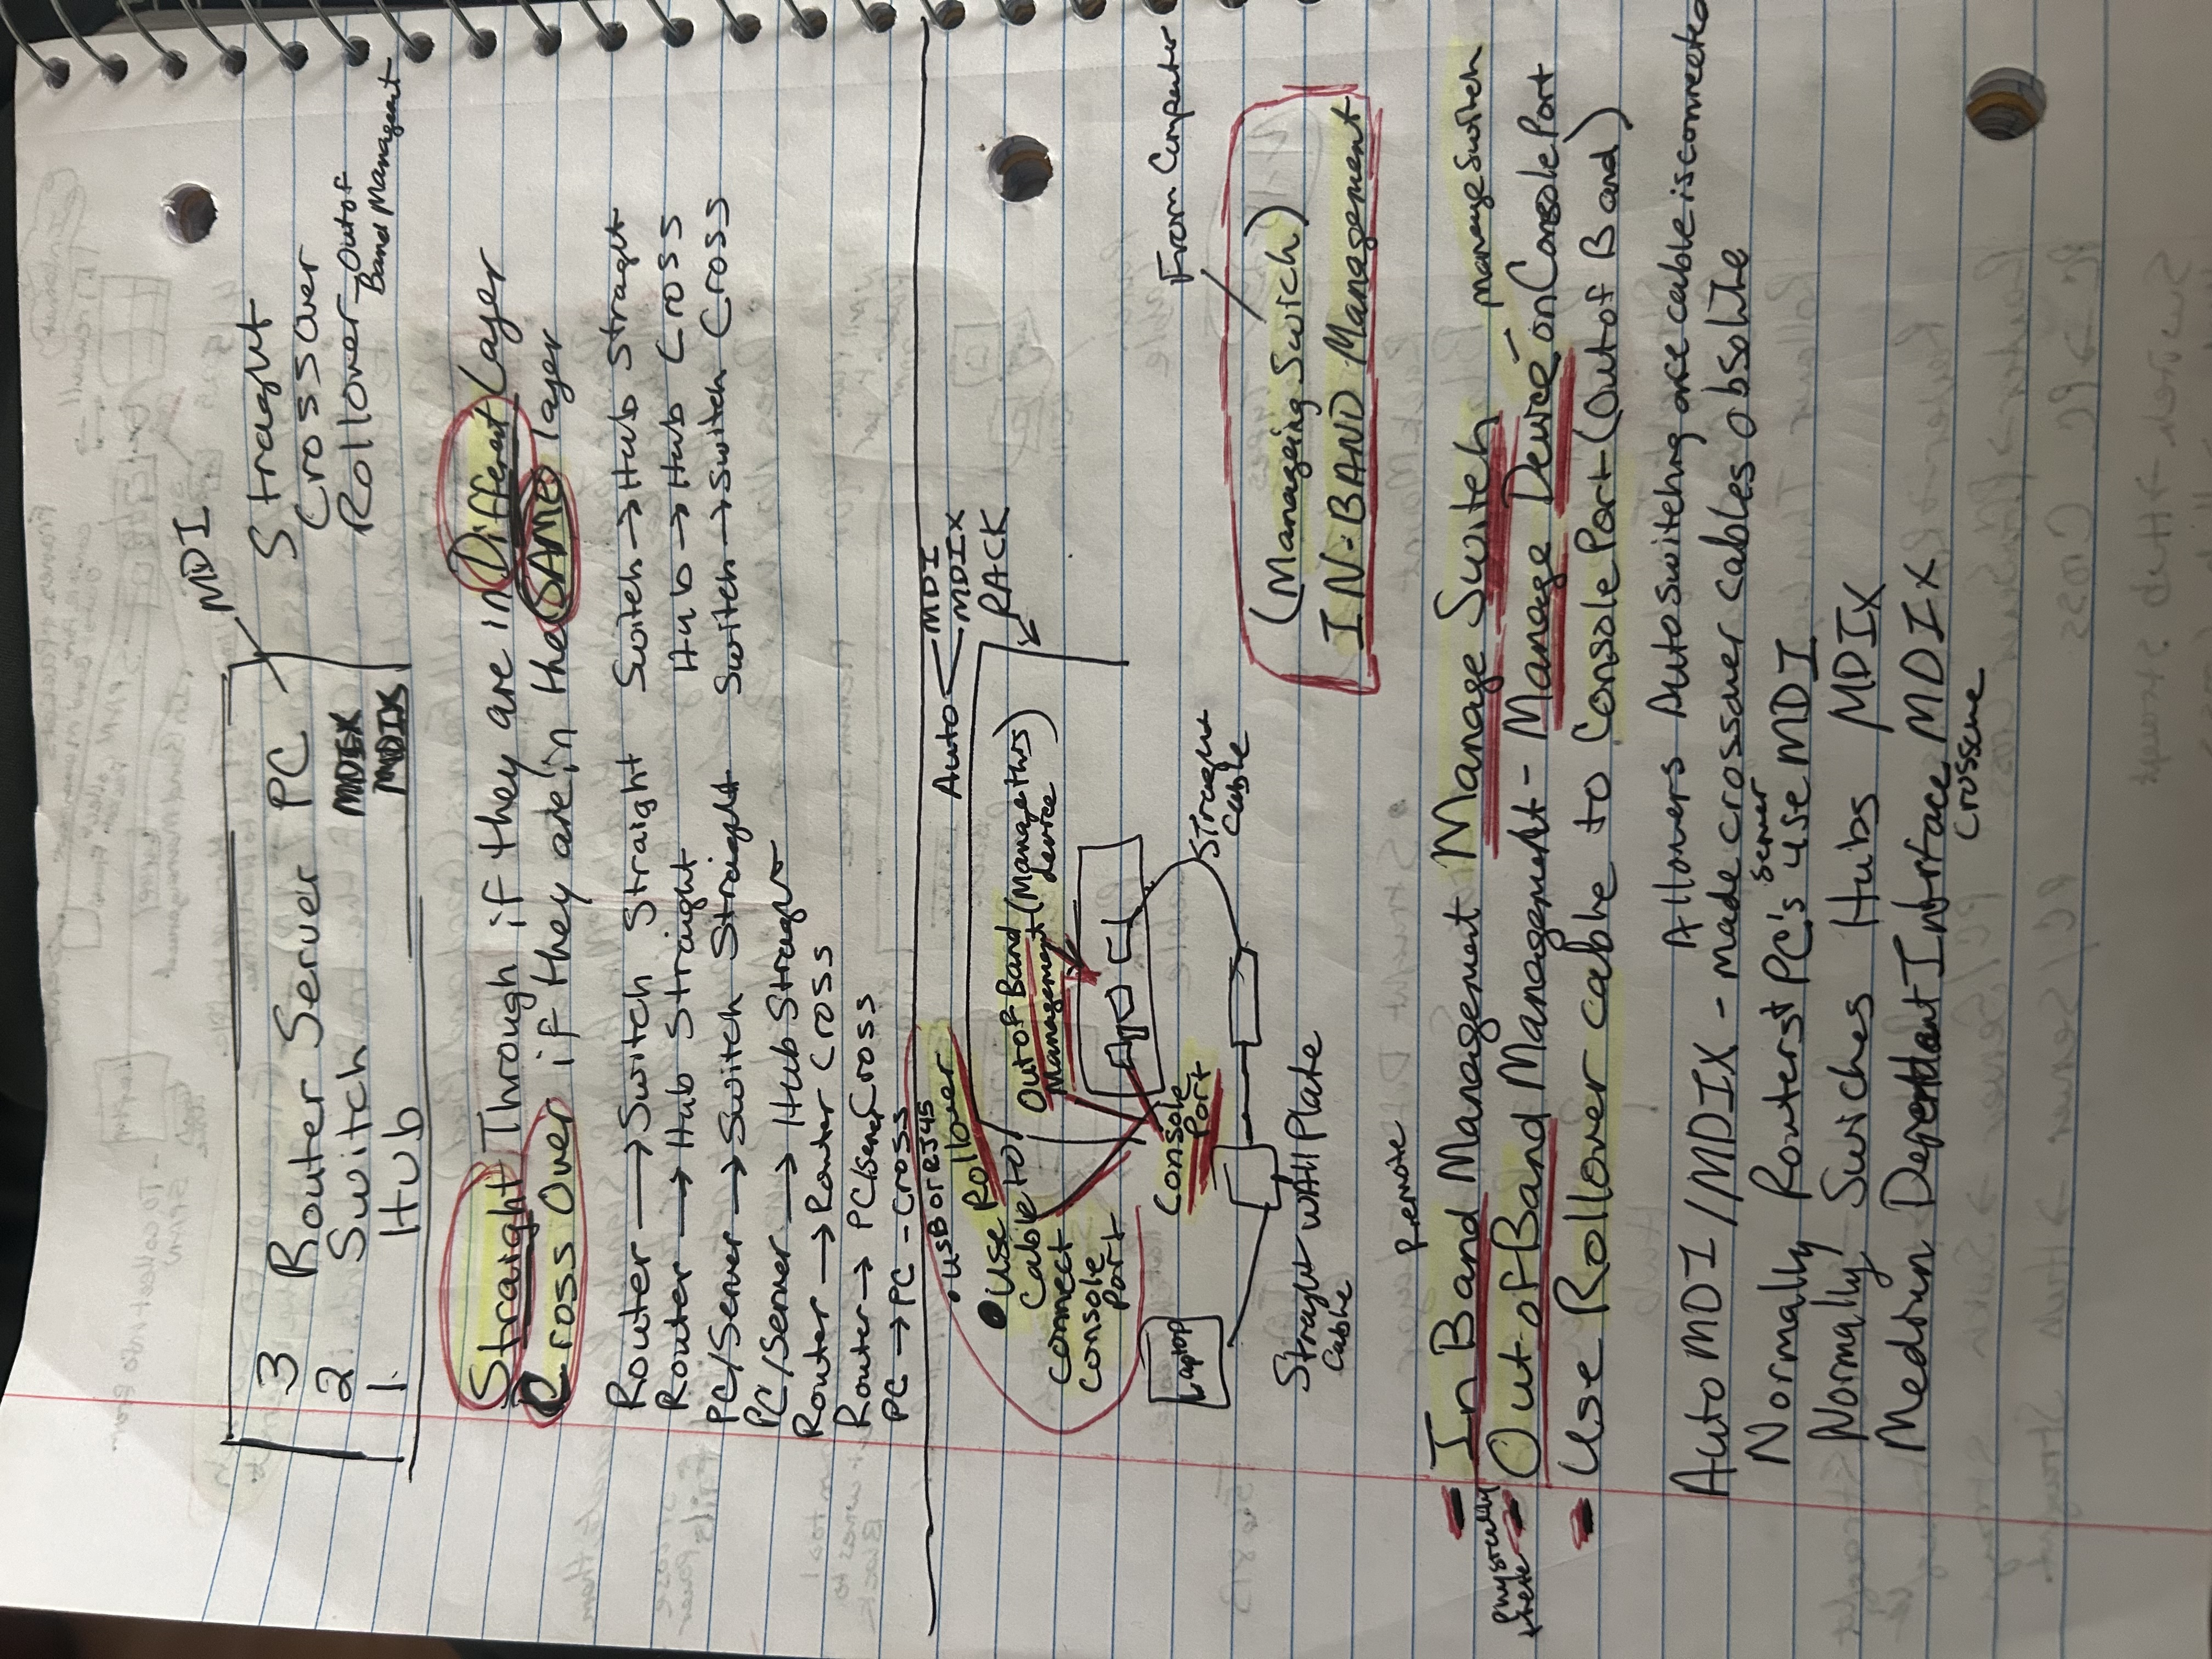 MDI
3 Router Server PC
2. Switch MDIX
1. Hub MDIX
Straght
Crossover
Rollover - Out of
Band Managemt
Straight Through if they are in Different Layer
Cross Over if they are in the SAME layer
Router → Switch Straight
Router → Hub Straight
PC/Server → Switch Straight
PC/Server → Hub Straght
Router → Router Cross
Router → PC/Server Cross
PC → PC - Cross
Switch → Hub Straght
Hub → Hub Cross
Switch → Switch Cross
• USB or RJ45
• Use Rollover
Cable to
Connect
Console
Port
Auto MDI
MDIX
RACK
Out of Band (Manage this)
Management device
Laptop
Console
Port
Straght
Cable
Straght
Cable
WAll Plate
From Computer
(Manageing Swich)
IN-BAND Management
Remote
- In Band Management Manage Switch
Physically
there
manage Switch
- Out of Band Management - Manage Device on Console Port
- Use Rollover cable to Console Port (Out of Band)
Auto switching once cable is connected
Auto MDI/MDIX - made crossover cables
Normally Routers + PC's server use MDI
Normally Swiches Hubs MDIX
Interface MDIX